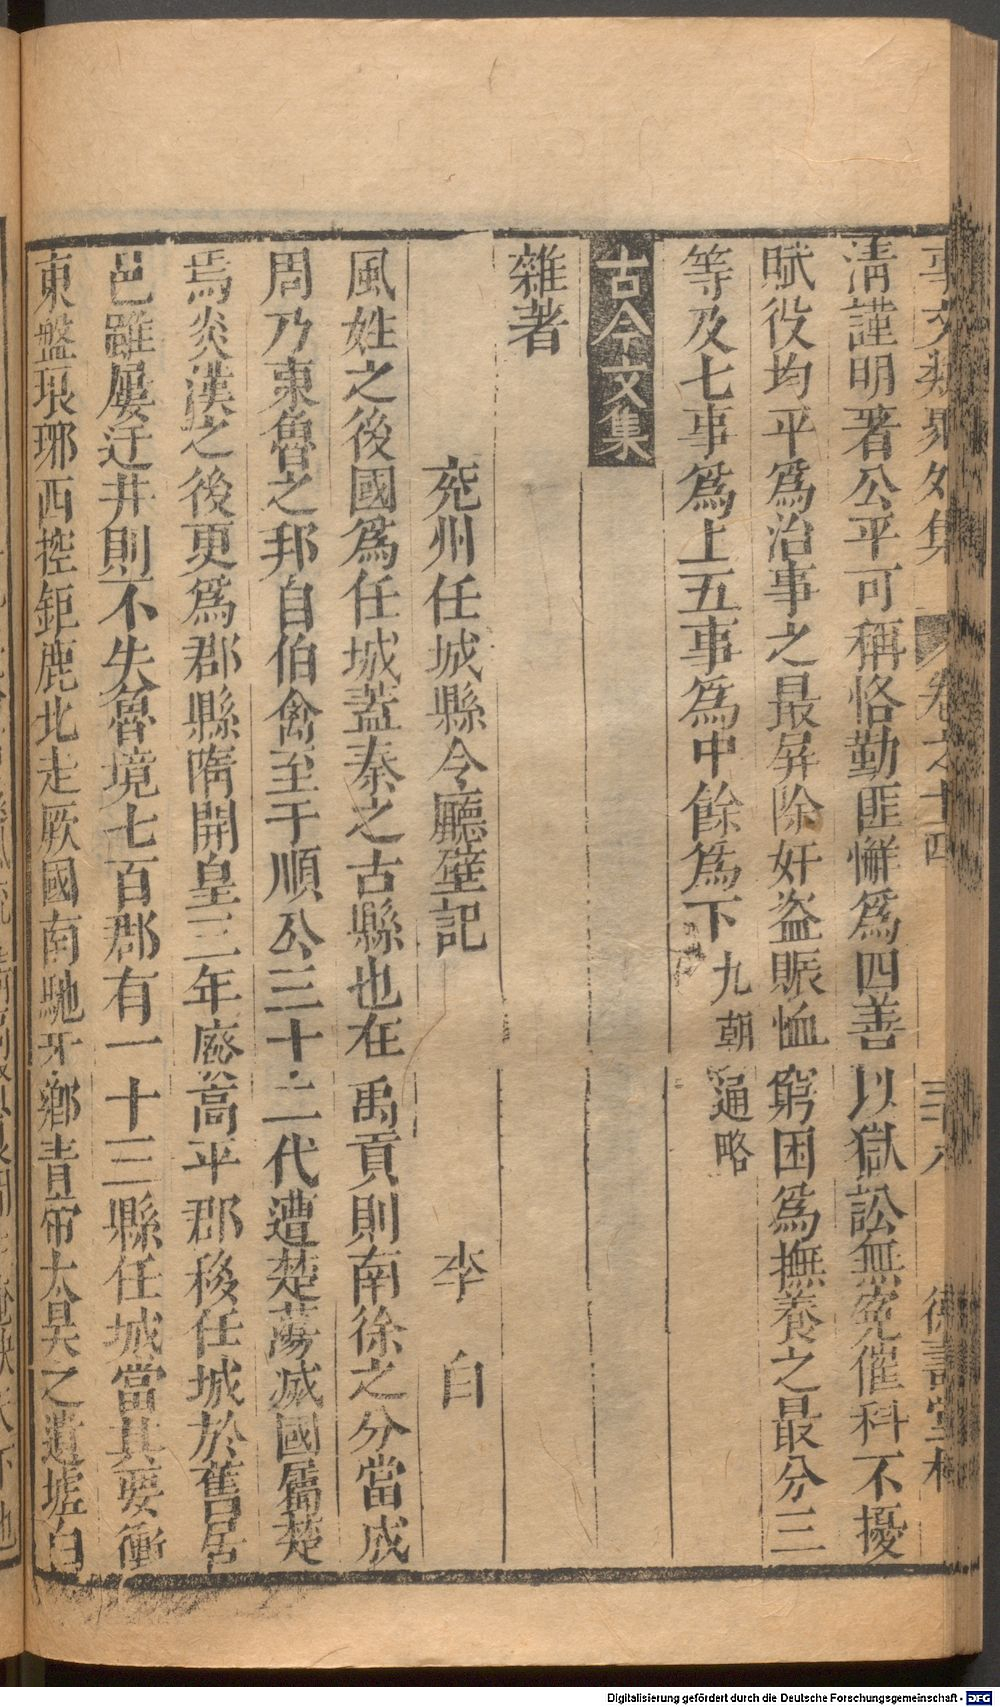 事文類聚外集 卷之十四 三十八 德壽堂梓
清謹明著公平可稱恪勤匪懈爲四善以獄訟無寃催科不擾
賦役均平爲治事之最屏除奸盗賑恤窮困爲撫養之最分三
等及七事爲上五事爲中餘爲下九朝通略
古今文集
雜著
兖州任城縣令廳壁記 李白
風姓之後國爲任城蓋秦之古縣也在禹貢則南徐之分當成
周乃東魯之邦自伯禽至于順公三十二代遭楚蕩滅國屬楚
焉炎漢之後更爲郡縣隋開皇三年廢高平郡移任城於舊居
邑雖屢迁井則不失魯境七百郡有一十三縣任城當其要衝
東盤琅琊西控鉅鹿北走厥國南馳牙鄉青帝太昊之遺墟白
Digitalisierung gefördert durch die Deutsche Forschungsgemeinschaft - DFG